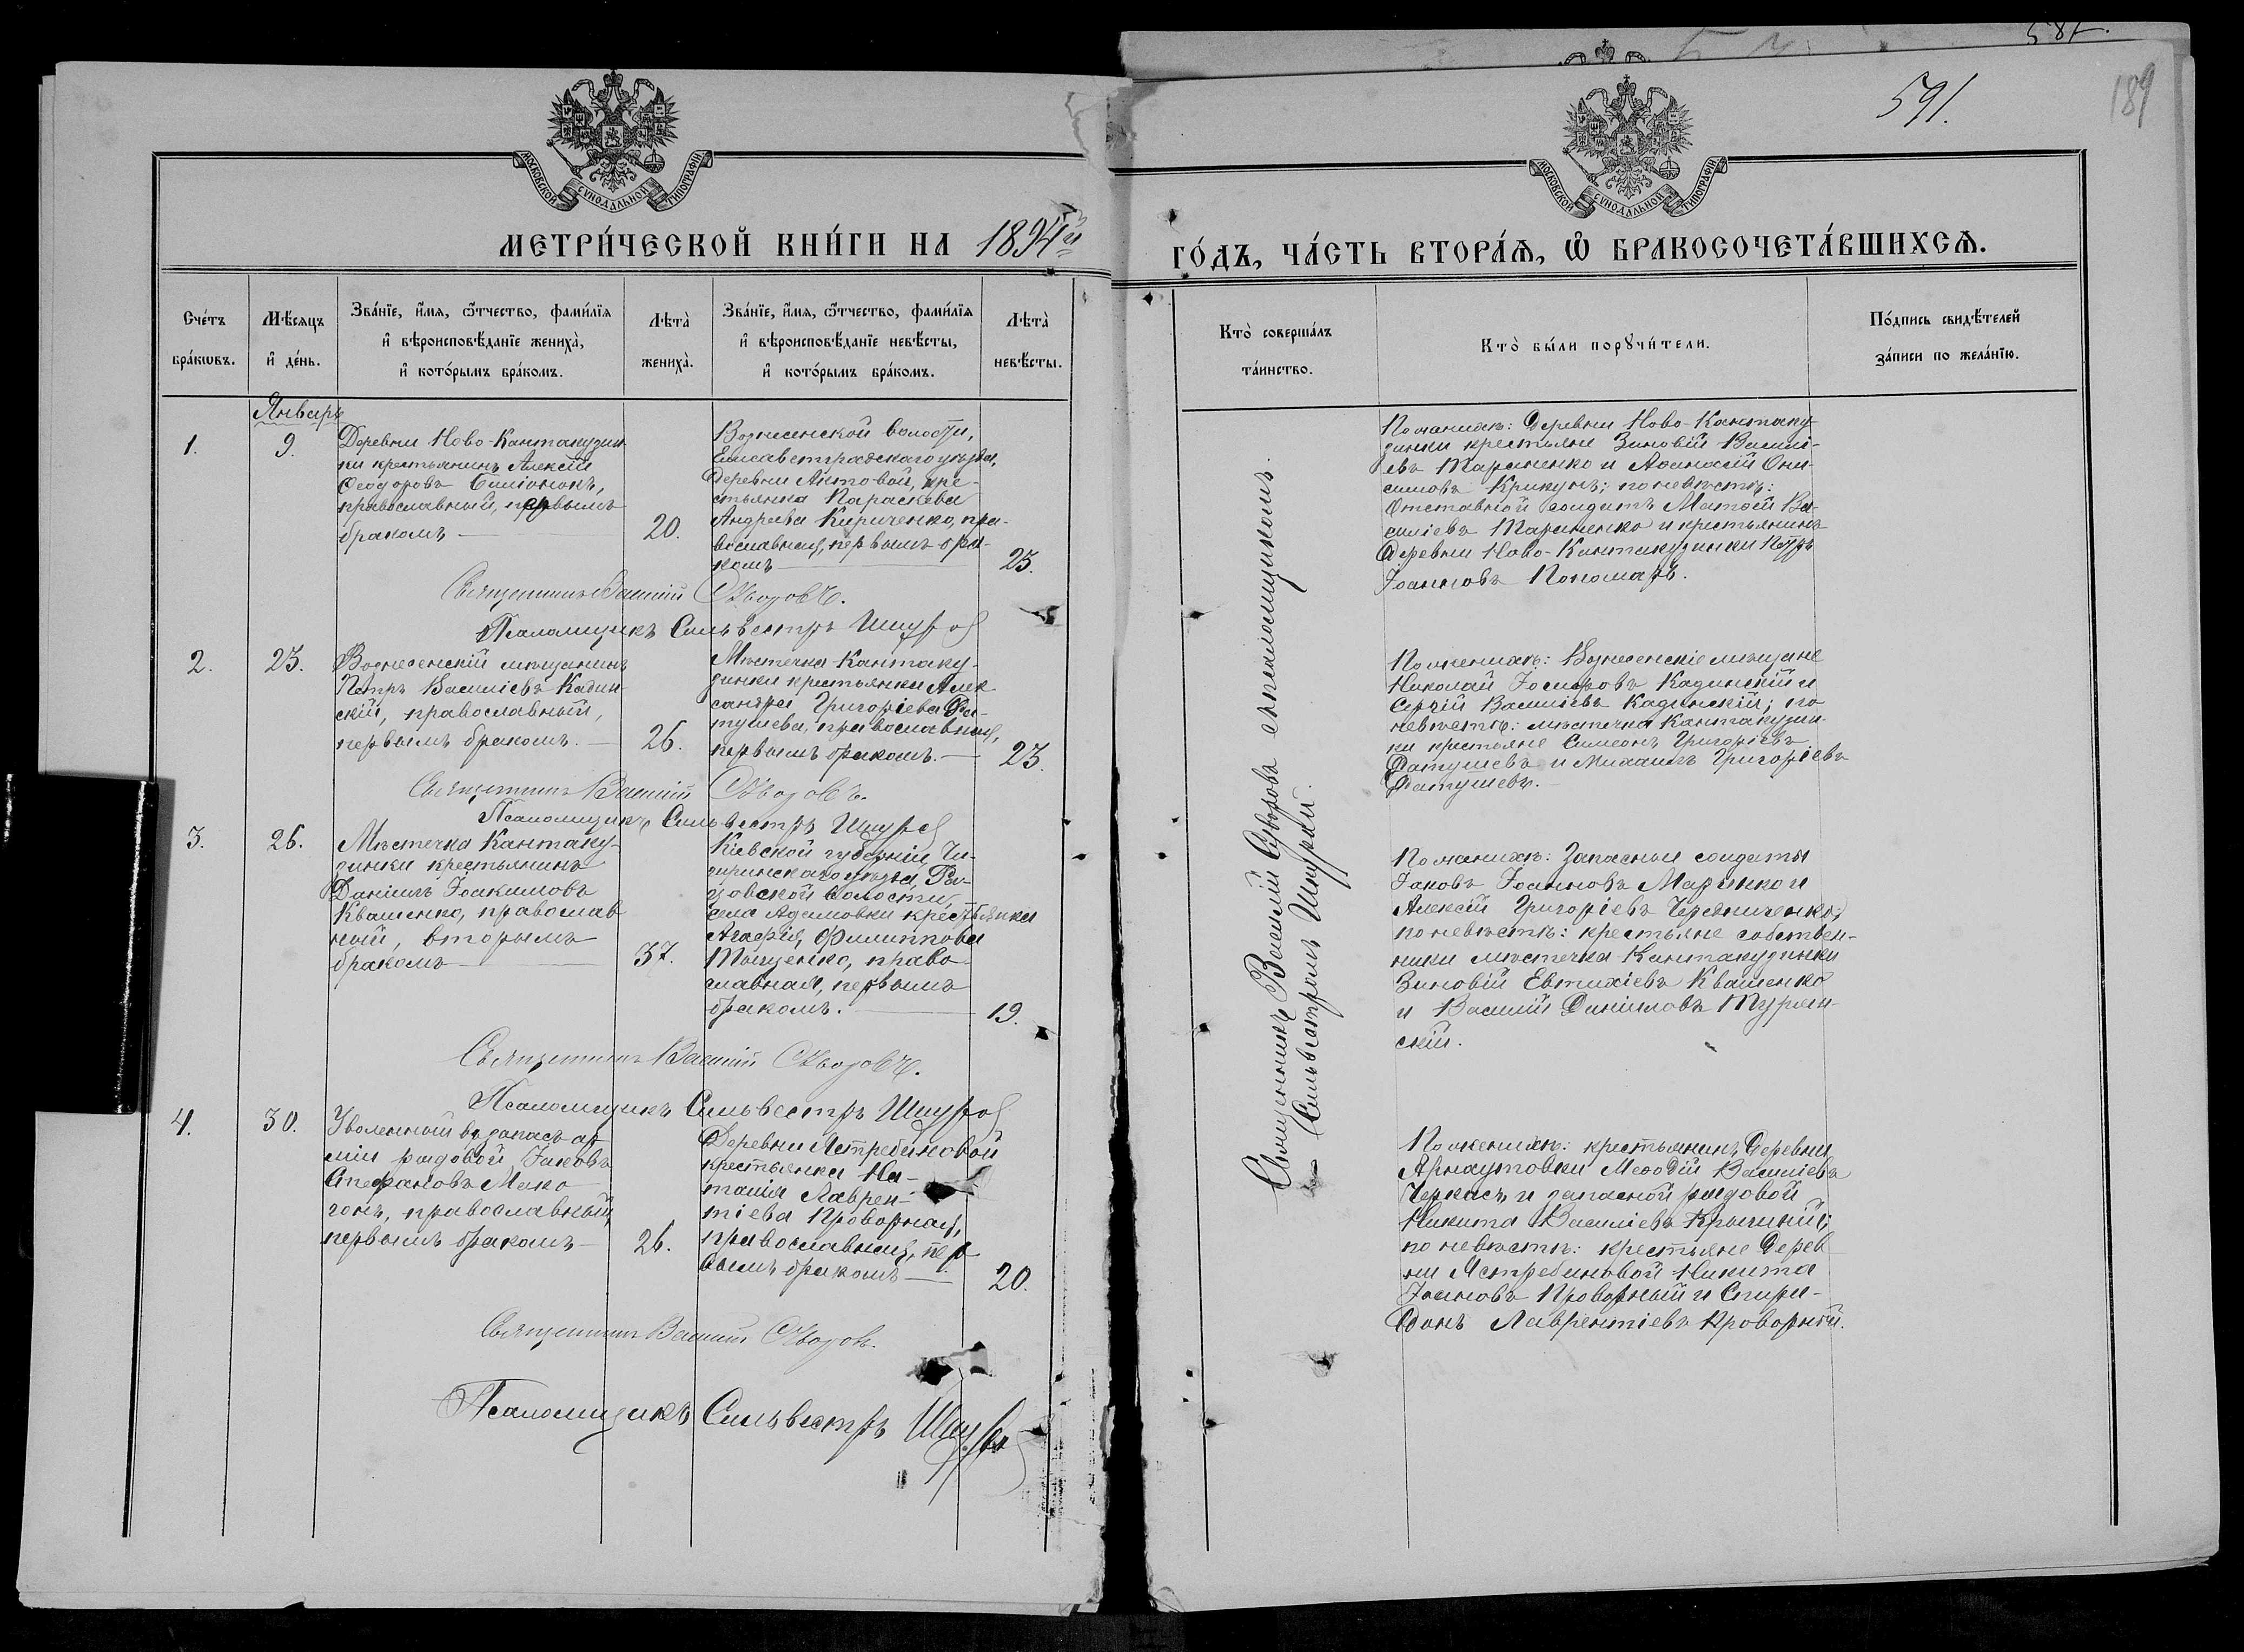 581.
591.
189
МОСКОВСКОЙ СѴНОДАЛЬНОЙ ТИПОГРАФІИ.
МОСКОВСКОЙ СѴНОДАЛЬНОЙ ТИПОГРАФІИ.
МЕТРИ́ЧЕСКОЙ КНИ́ГИ НА 1894й
ГО́ДЪ, ЧА́СТЬ ВТОРА́Ѧ, Ѽ БРАКОСОЧЕТА́ВШИХСѦ.
Сче́тъ
бра́кѡвъ.
Мѣ́сяцъ
и҆ де́нь.
Зва́нїе, и҆́мя, ѻ҆́тчество, фами́лїя
и҆ вѣроисповѣ́данїе жениха̀,
и҆ кото́рымъ бра́комъ.
Лѣта̀
жениха̀.
Зва́нїе, и҆́мя, ѻ҆́тчество, фами́лїя
и҆ вѣроисповѣ́данїе невѣ́сты,
и҆ кото́рымъ бра́комъ.
Лѣта̀
невѣ́сты.
Кто̀ соверша́лъ
та́инство.
Кто̀ бы́ли порꙋчи́тели.
По́дпись свидѣ́телей
за́писи по жела́нїю.
Январь
1.
9.
Деревни Ново-Кантакузин
ки крестьянинъ Алексій
Ѳеодоровъ
православный, первымъ
бракомъ
20.
Вознесенской волости,
Елисаветградскаго уѣзда,
Деревни Актовой, кре-
стьянка Параскева
Андреева Кириченко, пра-
вославная, первымъ бра-
комъ
25.
По женихѣ: Деревни Ново-Кантаку
зинки крестьяне Зиновій Васили-
евъ Тараненко и Аѳанасій Они-
симовъ Крикунъ; по невѣстѣ:
Отставной солдатъ Матѳій Ва-
силіевъ Тараненко и крестьянинъ
Деревни Ново-Кантакузинки Петръ
Іоанновъ Пономарь.
Священникъ Василій Суворовъ.
Псаломщикъ Сильвестръ Шпурай
2.
23.
Вознесенскій мѣщанинъ
Петръ Василіевъ Кадин-
скій, православный,
первымъ бракомъ.
26.
Мѣстечка Кантаку-
зинки крестьянка Алек
сандра Григоріева Фа-
тушева, православная,
первымъ бракомъ.
23.
По женихѣ: Вознесенскіе мѣщане
Николай Іосифовъ Кадинскій и
Сергій Василіевъ Кадинскій; по
невѣстѣ: мѣстечка Кантакузин-
ки крестьяне Симеонъ Григоріевъ
Фатушевъ и Михаилъ Григоріевъ
Фатушевъ.
Священникъ Василій Суворовъ.
Псаломщикъ Сильвестръ Шпурай
3.
26.
Мѣстечка Кантаку-
зинки крестьянинъ
Даніилъ Іоакимовъ
Квашенко, православ
ный, вторымъ
бракомъ
37.
Кіевской губерніи, Чи-
гиринскаго уѣзда, Ра-
цовской волости,
села Адамовки крестьянка
Агафія Филиппова
Тищенко, право-
славная, первымъ
бракомъ.
19.
По женихѣ: Запасные солдаты
Іаковъ Іоанновъ Маринко и
Алексій Григоріевъ Чередниченко;
по невѣстѣ: крестьяне собствен-
ники мѣстечка Кантакузинки
Зиновій Евтихіевъ Квашенко
и Василій Даніиловъ Турян-
скій.
Священникъ Василій Суворовъ.
Псаломщикъ Сильвестръ Шпурай
4.
30.
Уволенный въ запасъ ар
міи рядовой Іаковъ
Стефановъ Мако
гонъ, православный,
первымъ бракомъ
26.
Деревни Ястребиновой
крестьянка На-
талія Лаврен-
тіева Проворная,
православная, пер
вымъ бракомъ
20.
По женихѣ: крестьянинъ Деревни
Арнаутовки Меѳодій Василіевъ
Черкасъ и запасной рядовой
Никита Василіевъ
по невѣстѣ: крестьяне Дерев
ни Ястребиновой Никита
Іоанновъ Проворный и Спири-
донъ Лаврентіевъ Проворный.
Священникъ Василій Суворовъ.
Псаломщикъ Сильвестръ Шпурай
Священникъ Василій Суворовъ съ псаломщикомъ
Сильвестромъ Шпурай.